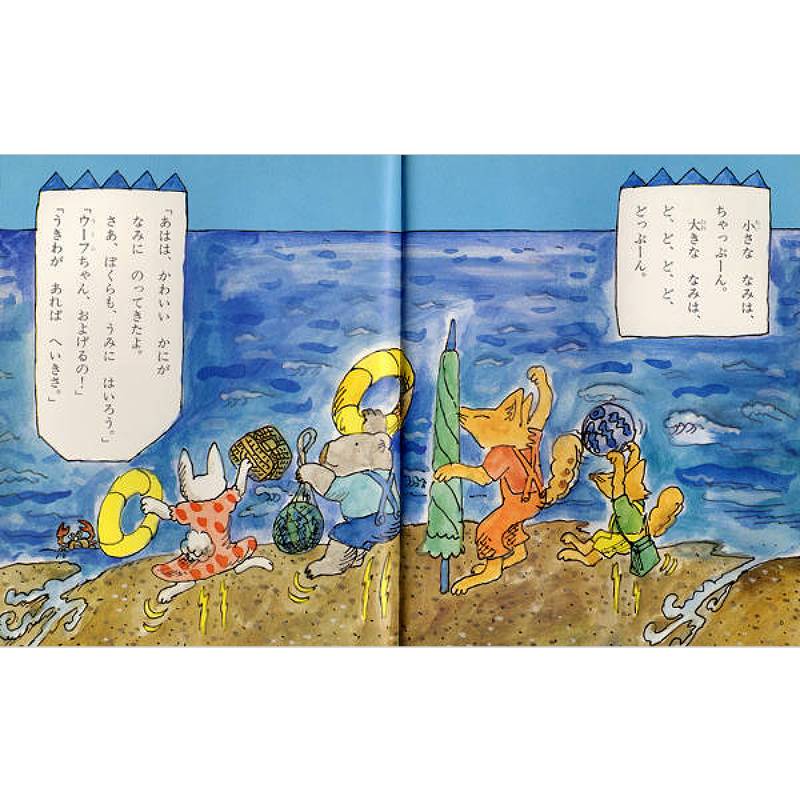 小さな なみは、
ちゃっぷーん。
大きな なみは、
ど、ど、ど、ど、
どっぷーん。
「あはは、かわいい かにが
なみに のってきたよ。
さあ、ぼくらも、うみに はいろう。」
「ウーフちゃん、およげるの！」
「うきわが あれば へいきさ。」